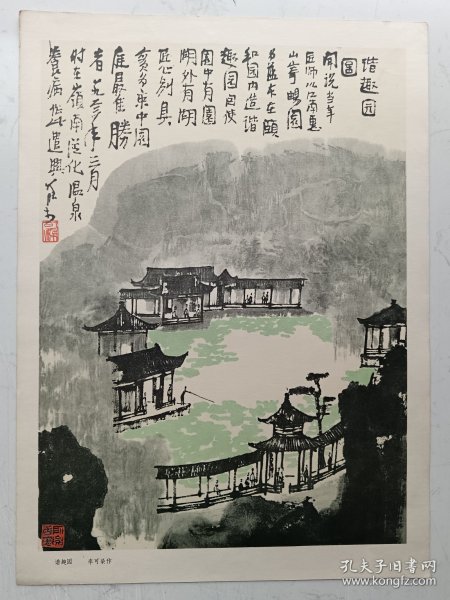 谐趣园
图
闻说当年
巨师以江南惠
山寄畅园
为蓝本在颐
和园内造谐
趣园自使
园中有园
湖外有湖
匠心别具
实为京中园
庭最佳胜
者
三月
时在岭南从化温泉
养病作此遣兴
可染
谐趣园 李可染作
孔夫子旧书网